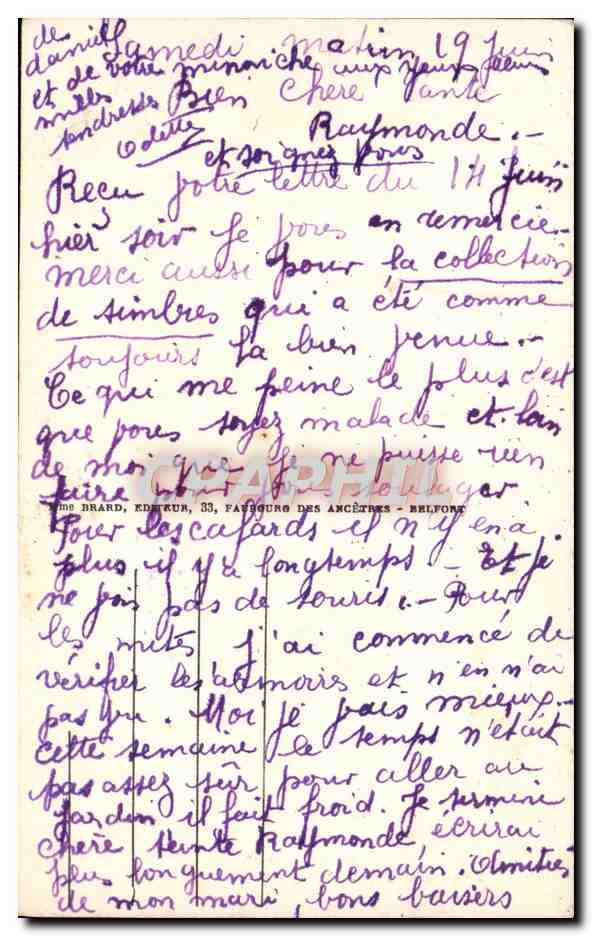 Samedi matin 19 Juin
Bien chère Tante
Raymonde. -
et soignez vous
Reçu votre lettre du 14 Juin
hier soir Je vous en remercie. -
merci aussi pour la collection
de timbres qui a été comme
toujours la bien venue. -
Ce qui me peine le plus c'est
que vous soyez malade et loin
de moi que Je ne puisse rien
faire pour vous soulager
Mme BRARD, EDITEUR, 33, FAUBOURG DES ANCÊTRES - BELFORT
Pour les cafards il n'y en a
plus il y a longtemps - Et je
ne vois pas de souris. - Pour
les mites J'ai commencé de
vérifier les armoires et n'en n'ai
pas vu. Moi je vais mieux. -
cette semaine le temps n'était
pas assez sûr pour aller au
Jardin il fait froid. Je termine
chère tante Raymonde, écrirai
plus longuement demain. Amitiés
de mon mari, bons baisers
de daniel
et de votre minoiche aux yeux bleus
milles
tendresses
Odette
CPARHTI